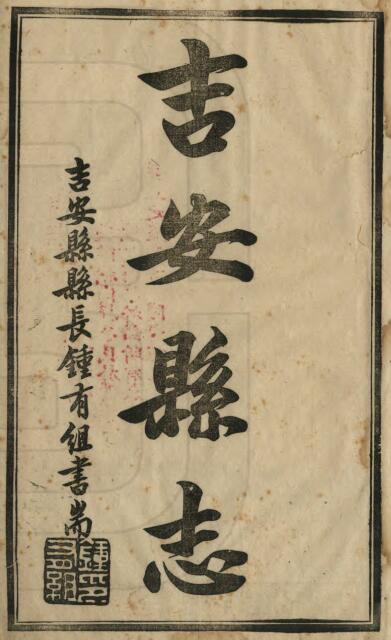 吉安縣志
吉安縣縣長鍾有組書耑